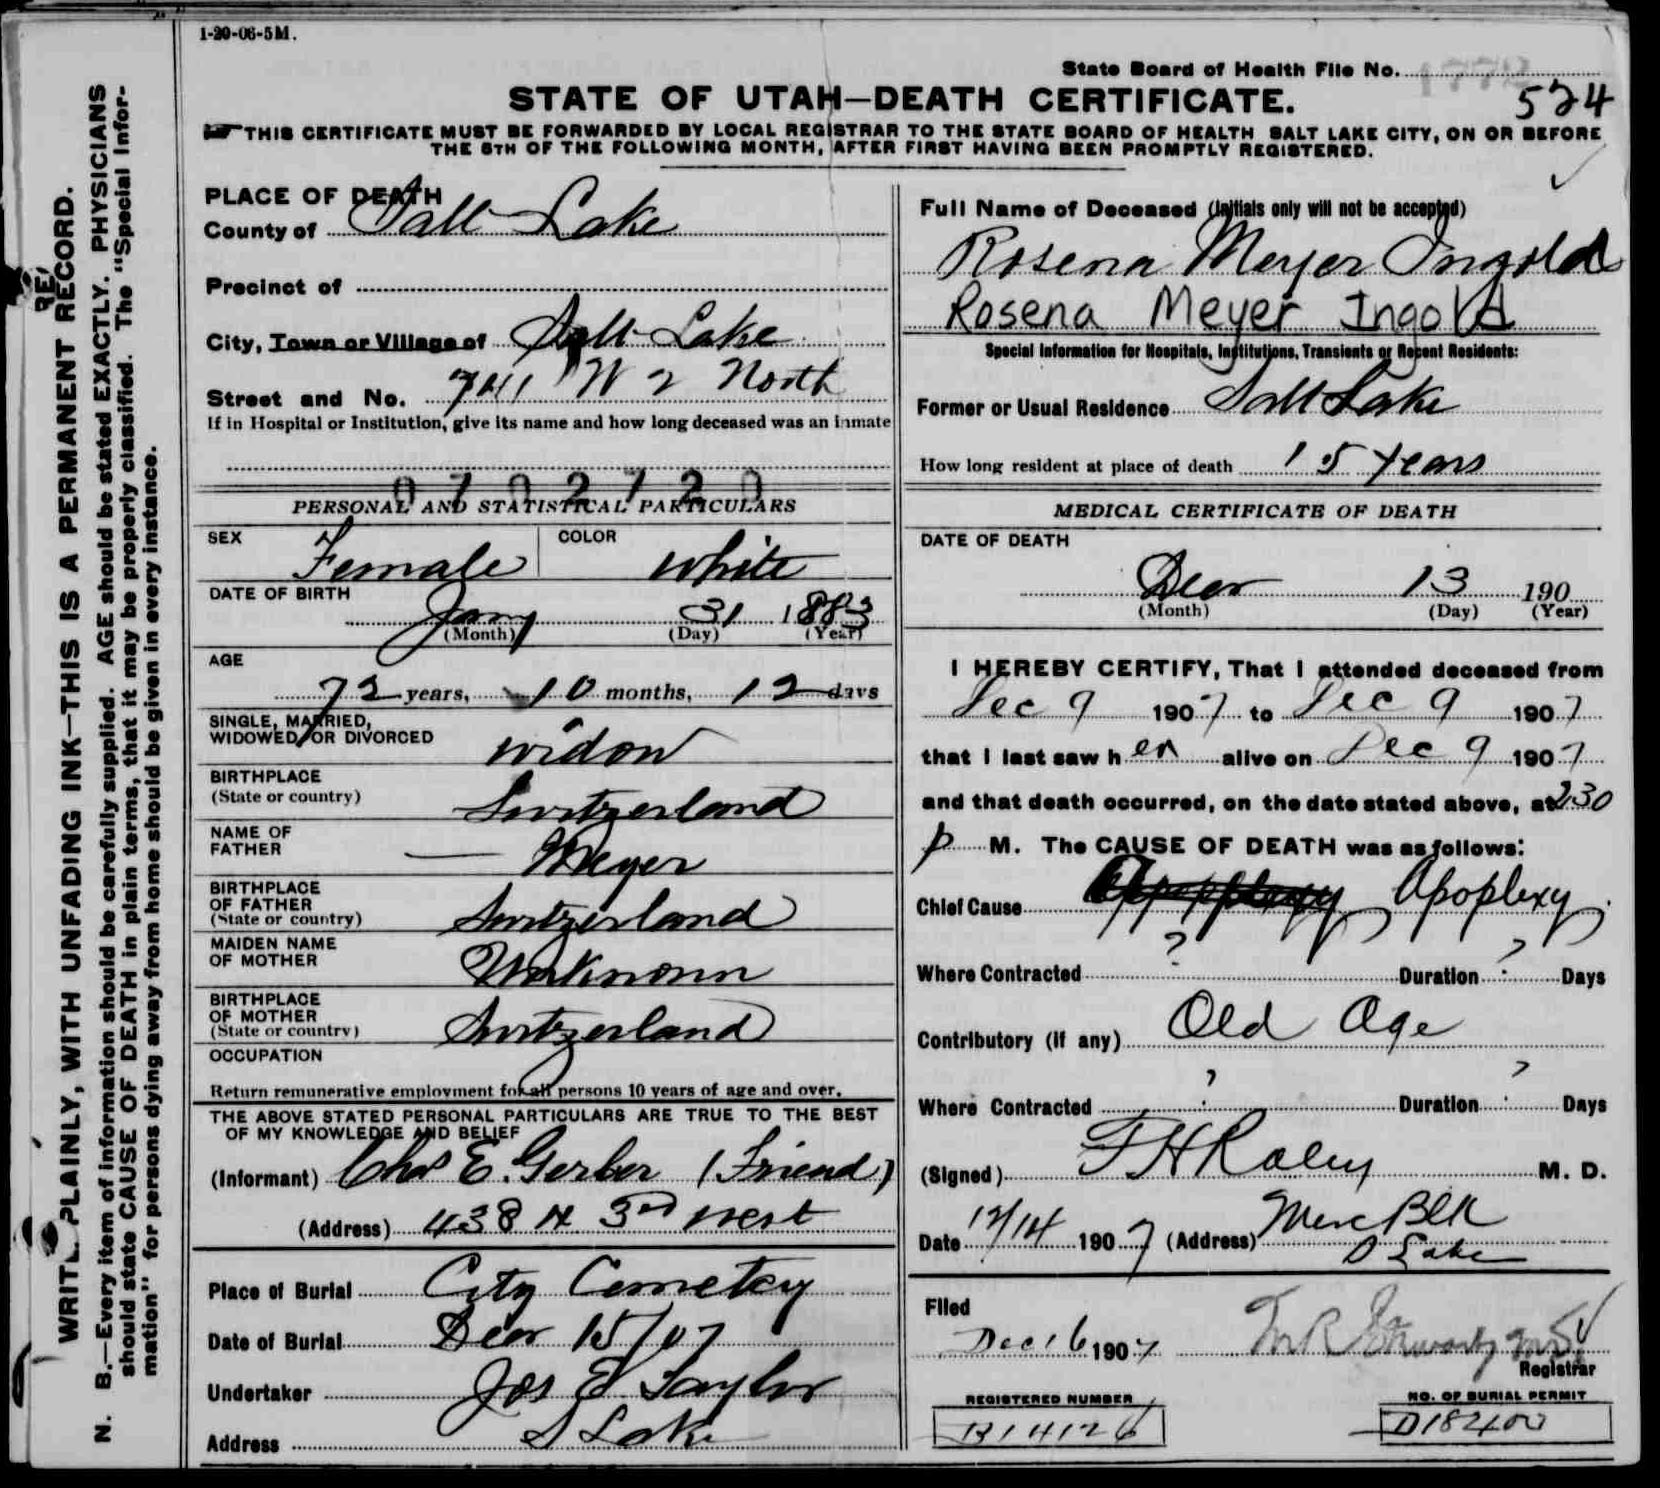 1-20-06-5M.
State Board of Health File No.
524
STATE OF UTAH—DEATH CERTIFICATE.
THIS CERTIFICATE MUST BE FORWARDED BY LOCAL REGISTRAR TO THE STATE BOARD OF HEALTH SALT LAKE CITY, ON OR BEFORE
THE 5TH OF THE FOLLOWING MONTH, AFTER FIRST HAVING BEEN PROMPTLY REGISTERED.
WRITE PLAINLY, WITH UNFADING INK—THIS IS A PERMANENT RECORD.
N. B.—Every item of information should be carefully supplied. AGE should be stated EXACTLY. PHYSICIANS
should state CAUSE OF DEATH in plain terms, that it may be properly classified. The "Special Infor-
mation" for persons dying away from home should be given in every instance.
PLACE OF DEATH
County of Salt Lake
Precinct of
City, Town or Village of Salt Lake
Street and No. 741 W 2 North
If in Hospital or Institution, give its name and how long deceased was an inmate
0702720
PERSONAL AND STATISTICAL PARTICULARS
SEX Female COLOR White
DATE OF BIRTH
Jany 31 1883
(Month) (Day) (Year)
AGE
72 years, 10 months, 12 days
SINGLE, MARRIED,
WIDOWED, OR DIVORCED widow
BIRTHPLACE
(State or country) Switzerland
NAME OF
FATHER — Meyer
BIRTHPLACE
OF FATHER
(State or country) Switzerland
MAIDEN NAME
OF MOTHER Unknown
BIRTHPLACE
OF MOTHER
(State or country) Switzerland
OCCUPATION
Return remunerative employment for all persons 10 years of age and over.
THE ABOVE STATED PERSONAL PARTICULARS ARE TRUE TO THE BEST
OF MY KNOWLEDGE AND BELIEF
(Informant) Chas E. Gerber (Friend)
(Address) 438 N 3rd West
Place of Burial City Cemetery
Date of Burial Decr 15/07
Undertaker Jos E Taylor
Address S Lake
Full Name of Deceased (Initials only will not be accepted)
Rosena Meyer Ingold
Rosena Meyer Ingold
Special Information for Hospitals, Institutions, Transients or Recent Residents:
Former or Usual Residence Salt Lake
How long resident at place of death 15 years
MEDICAL CERTIFICATE OF DEATH
DATE OF DEATH
Decr 13 190
(Month) (Day) (Year)
I HEREBY CERTIFY, That I attended deceased from
Dec 9 1907 to Dec 9 1907
that I last saw her alive on Dec 9 1907
and that death occurred, on the date stated above, at 2.30
p M. The CAUSE OF DEATH was as follows:
Chief Cause Apoplexy Apoplexy.
Where Contracted ? Duration ? Days
Contributory (if any) Old Age
Where Contracted ? Duration ? Days
(Signed) M. D.
Date 12/14 1907 (Address) Merc Blk
S Lake
Filed
Dec 16 1907
Registrar
REGISTERED NUMBER
B14126
NO. OF BURIAL PERMIT
D18400